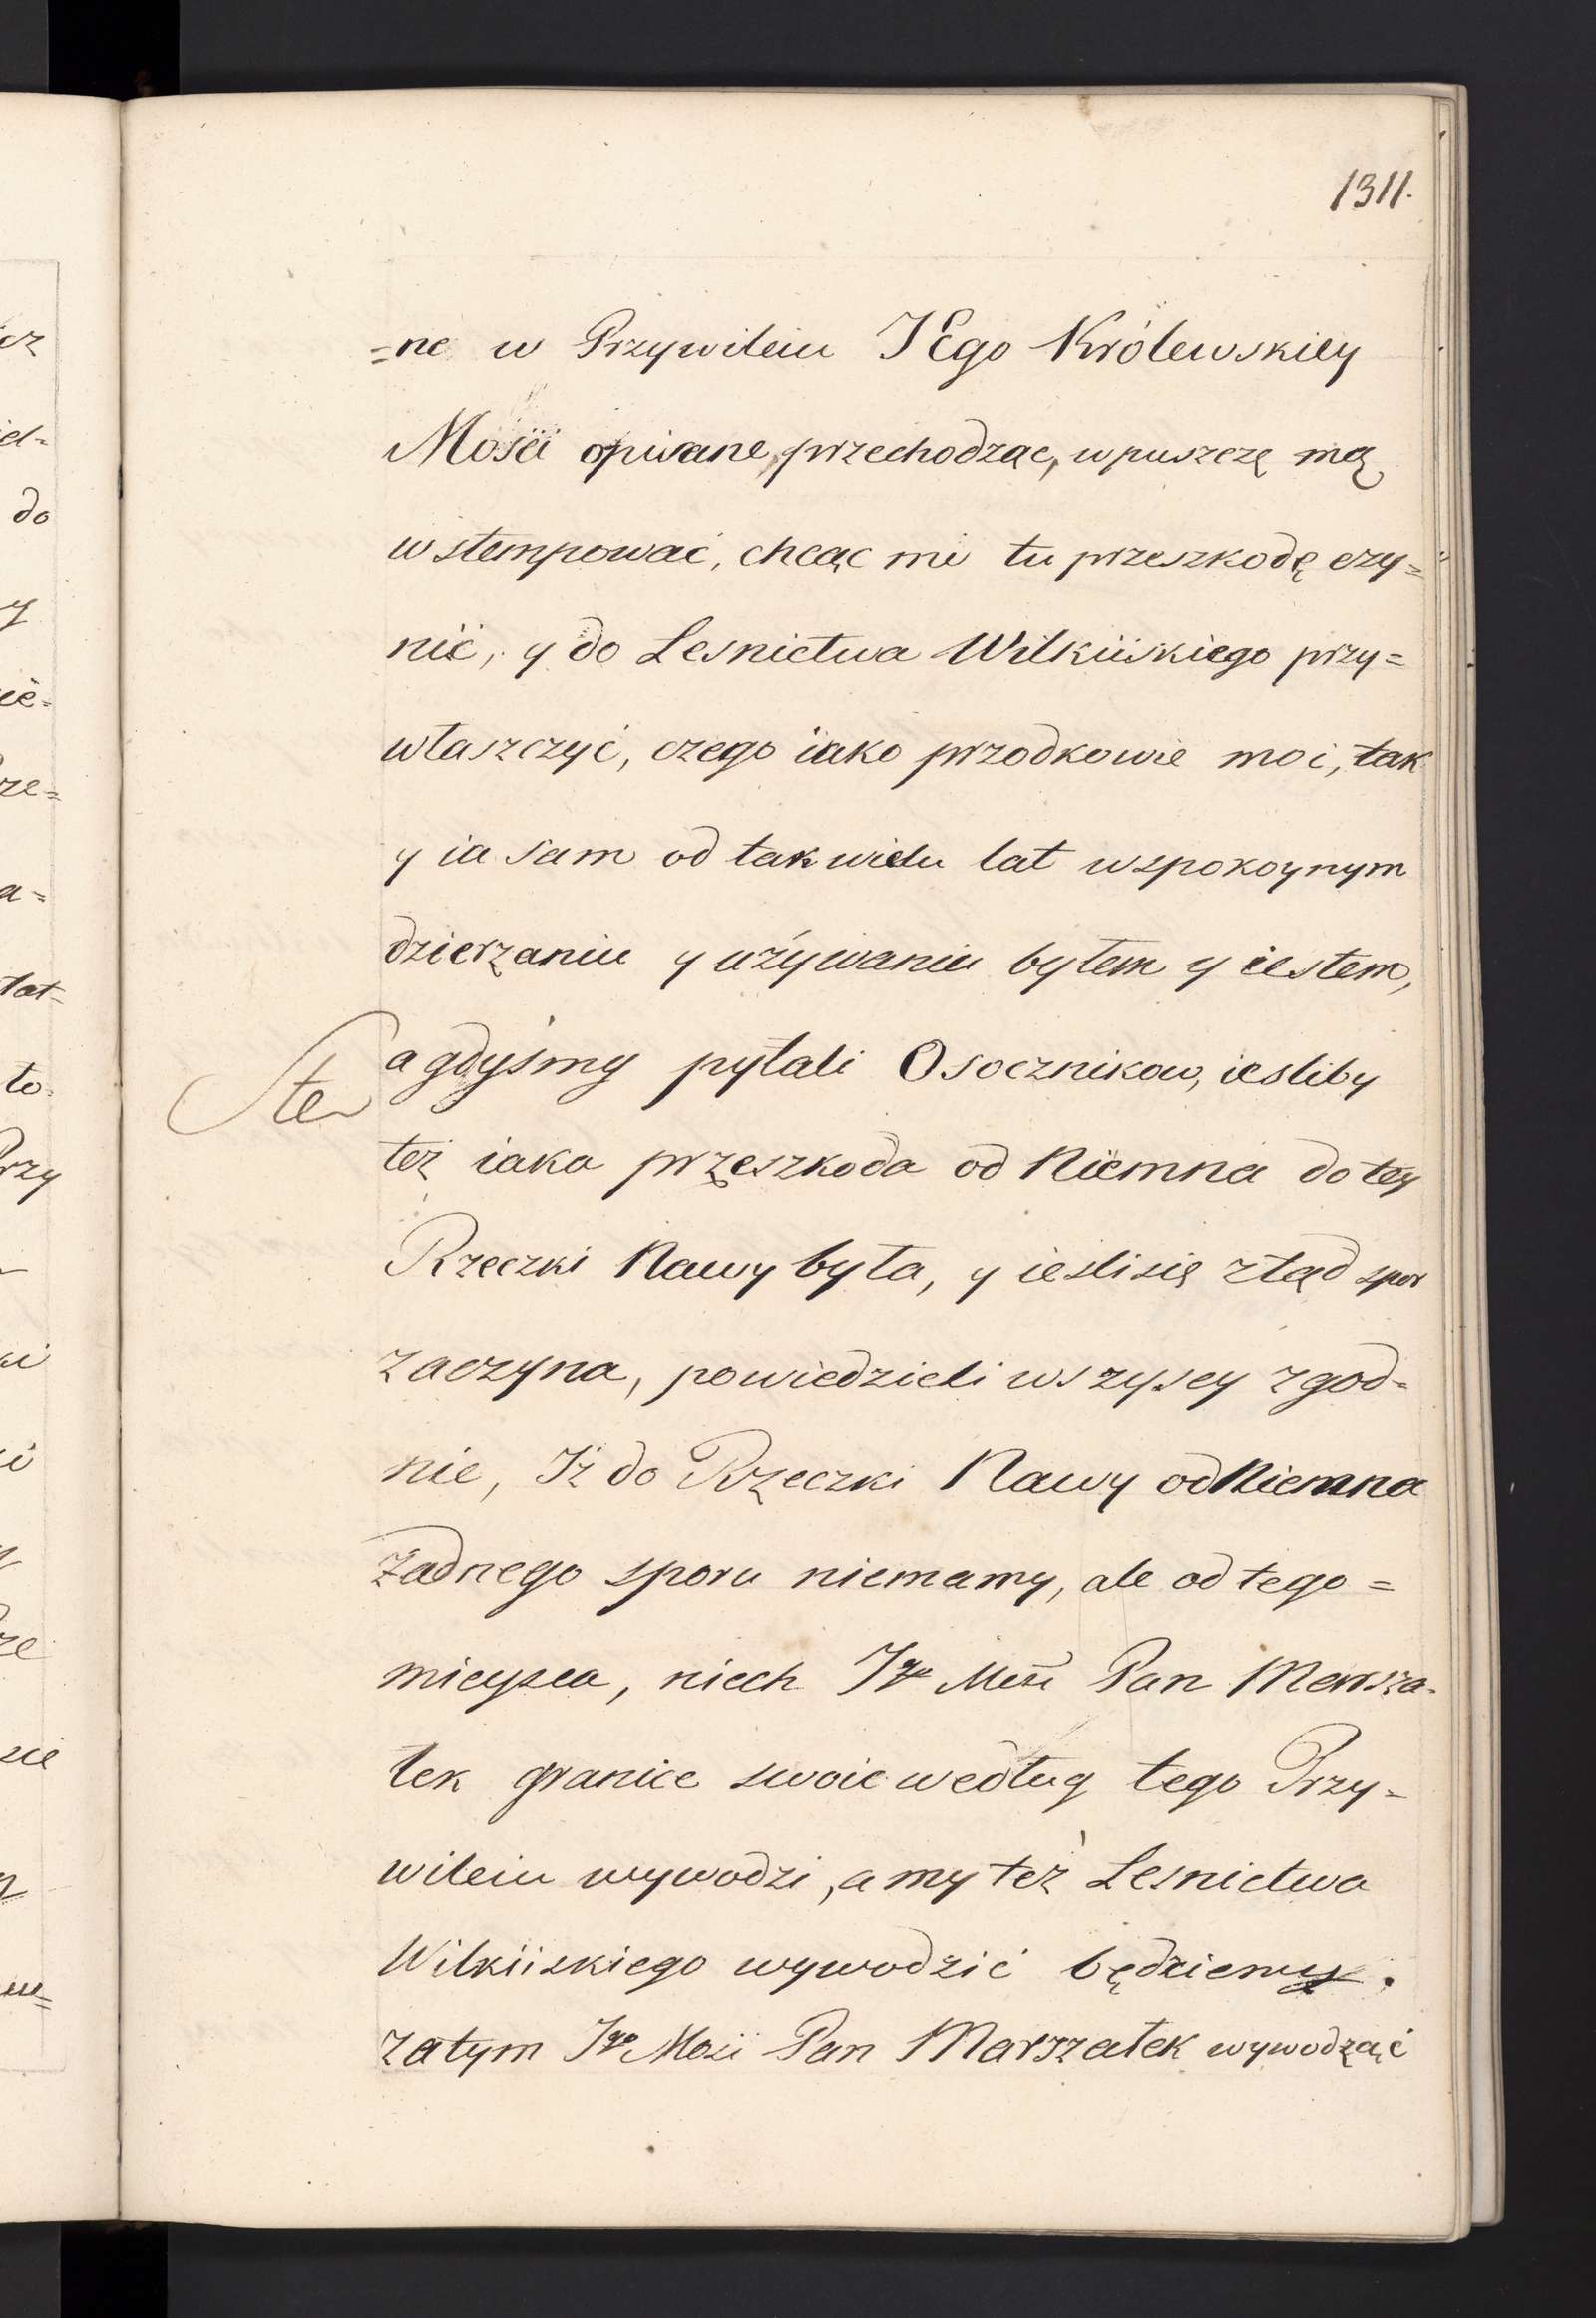 1311.
=ne w Przywileiu JEgo Królewskiey
Mości opisane, przechodząc, w puszczę mą
wstempować, chcąc mi tu przeszkodę czy=
nić, y do Lesnictwa Wilkiiskiego przy=
właszczyć, czego iako przodkowie moi, tak
y ia sam od tak wielu lat w spokoynym
dzierżaniu y używaniu byłem y iestem,
a gdyśmy pytali Osocznikow, iesliby
też iaka przeszkoda od Niemna do tey
Rzeczki Nawy była, y iesli się ztąd spor
zaczyna, powiedzieli wszyscy zgod=
nie, Iż do Rzeczki Nawy od Niemna
żadnego sporu niemamy, ale od tego=
mieysca, niech Jgo Mość Pan Marsza=
łek granice swoie według tego Przy=
wileiu wywodzi, a my też Lesnictwa
Wilkiiskiego wywodzić będziemy.
zatym Jgo Mość Pan Marszałek wywodząć